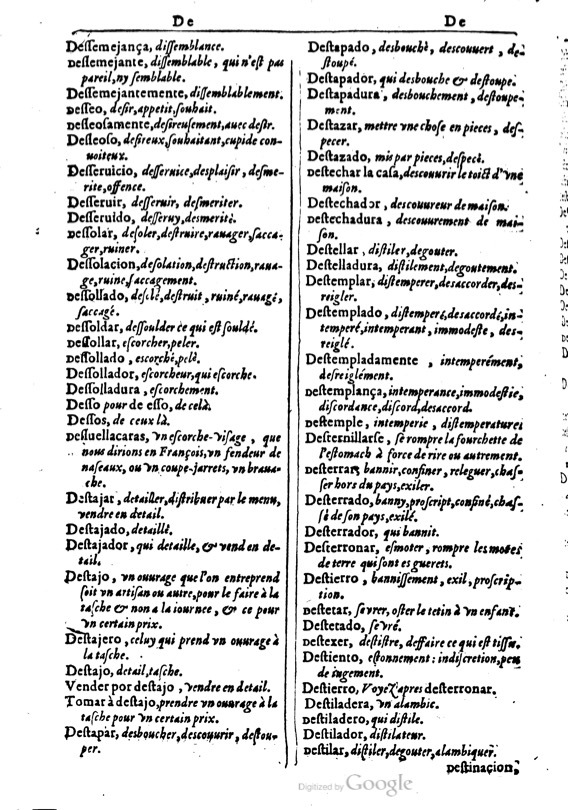 De
De
Dessemejança, dissemblance.
Dessemejante, dissemblable, qui n'est pas
pareil, ny semblable.
Dessemejantemente, dissemblablement.
Desseo, desir, appetit, souhait.
Desseosamente, desireusement, auec desir.
Desseoso, desireux, souhaitant, cupide con-
uoiteux.
Desseruicio, desseruice, desplaisir, desme-
rite, offence.
Desseruir, desseruir, desmeriter.
Desseruido, desseruy, desmerité.
Dessolar, desoler, destruire, rauager, sacca-
ger, ruiner.
Dessolacion, desolation, destruction, raua-
ge, ruine, saccagement.
Dessolado, desolé, destruit, ruiné, rauagé,
saccagé.
Dessoldar, dessoulder ce qui est souldé.
Dessollar, escorcher, peler.
Dessollado, escorché, pelé.
Dessollador, escorcheur, qui escorche.
Dessolladura, escorchement.
Desso pour de esso, de celà.
Dessos, de ceux là.
Dessuellacaras, vn escorche-visage, que
nous dirions en François, vn fendeur de
naseaux, ou vn coupe-jarrets, vn braua-
che.
Destajar, detailler, distribuer par le menu,
vendre en detail.
Destajado, detaillé.
Destajador, qui detaille, & vend en de-
tail.
Destajo, vn ouurage que l'on entreprend
soit vn artisan ou autre, pour le faire à la
tasche & non a la iournee, & ce pour
vn certain prix.
Destajero, celuy qui prend vn ouurage à
la tasche.
Destajo, detail, tasche.
Vender por destajo, vendre en detail.
Tomar à destajo, prendre vn ouurage à la
tasche pour vn certain prix.
Destapar, desboucher, descouurir, destou-
per.
Destapado, desbouché, descouuert, de-
stoupé.
Destapador, qui desbouche & destoupe.
Destapadura, desbouchement, destoupe-
ment.
Destazar, mettre vne chose en pieces, des-
pecer.
Destazado, mis par pieces, despecé.
Destechar la casa, descouurir le toict d'vne
maison.
Destechador, descouureur de maison.
Destechadura, descouurement de mai-
son.
Destellar, distiler, degouter.
Destelladura, distilement, degoutement.
Destemplar, distemperer, desaccorder, des-
reigler.
Destemplado, distemperé, desaccordé, in-
temperé, intemperant, immodeste, des-
reiglé.
Destempladamente, intemperément,
desreiglément.
Destemplança, intemperance, immodestie,
discordance, discord, desaccord.
Destemple, intemperie, distemperature.
Desternillarse, se rompre la fourchette de
l'estomach à force de rire ou autrement.
Desterrar, bannir, confiner, releguer, chas-
ser hors du pays, exiler.
Desterrado, banny, proscript, confiné, chas-
sé de son pays, exilé.
Desterrador, qui bannit.
Desterronar, esmoter, rompre les motes
de terre qui sont es guerets.
Destierro, bannissement, exil, proscrip-
tion.
Destetar, sevrer, oster le tetin à vn enfant.
Destetado, sevré.
Destexer, destistre, deffaire ce qui est tissu.
Destiento, estonnement: indiscretion, peu
de iugement.
Destierro, Voyez apres desterronar.
Destiladera, vn alambic.
Destiladero, qui distile.
Destilador, distilateur.
Destilar, distiler, degouter, alambiquer.
Destinacion,
Digitized by Google